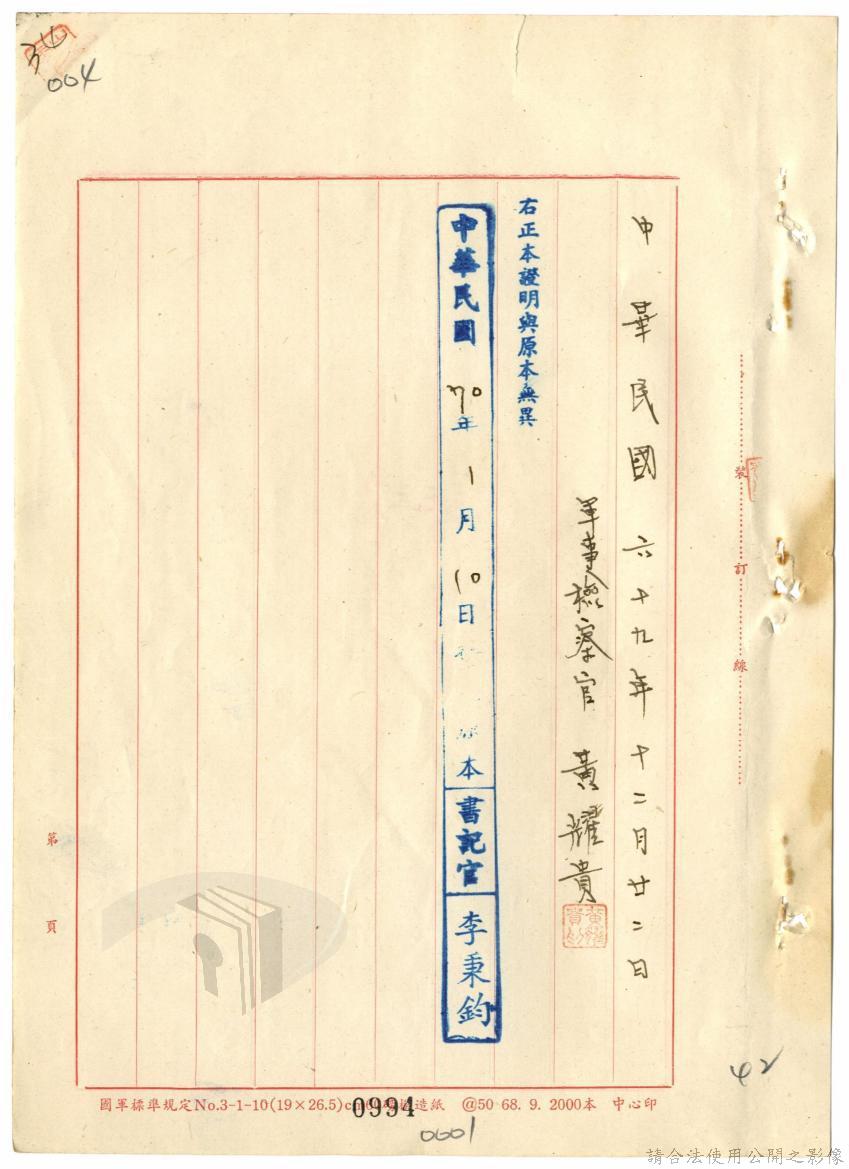 004
中華民國六十九年十二月廿二日
軍事檢察官 黃耀貴
右正本證明與原本無異
中華民國70年1月10日 本 書記官 李秉鈞
裝訂線
第 頁
國軍標準規定No.3-1-10(19×26.5)cm 造紙 @50 68.9.2000本 中心印
0994
0001
42
請合法使用公開之影像